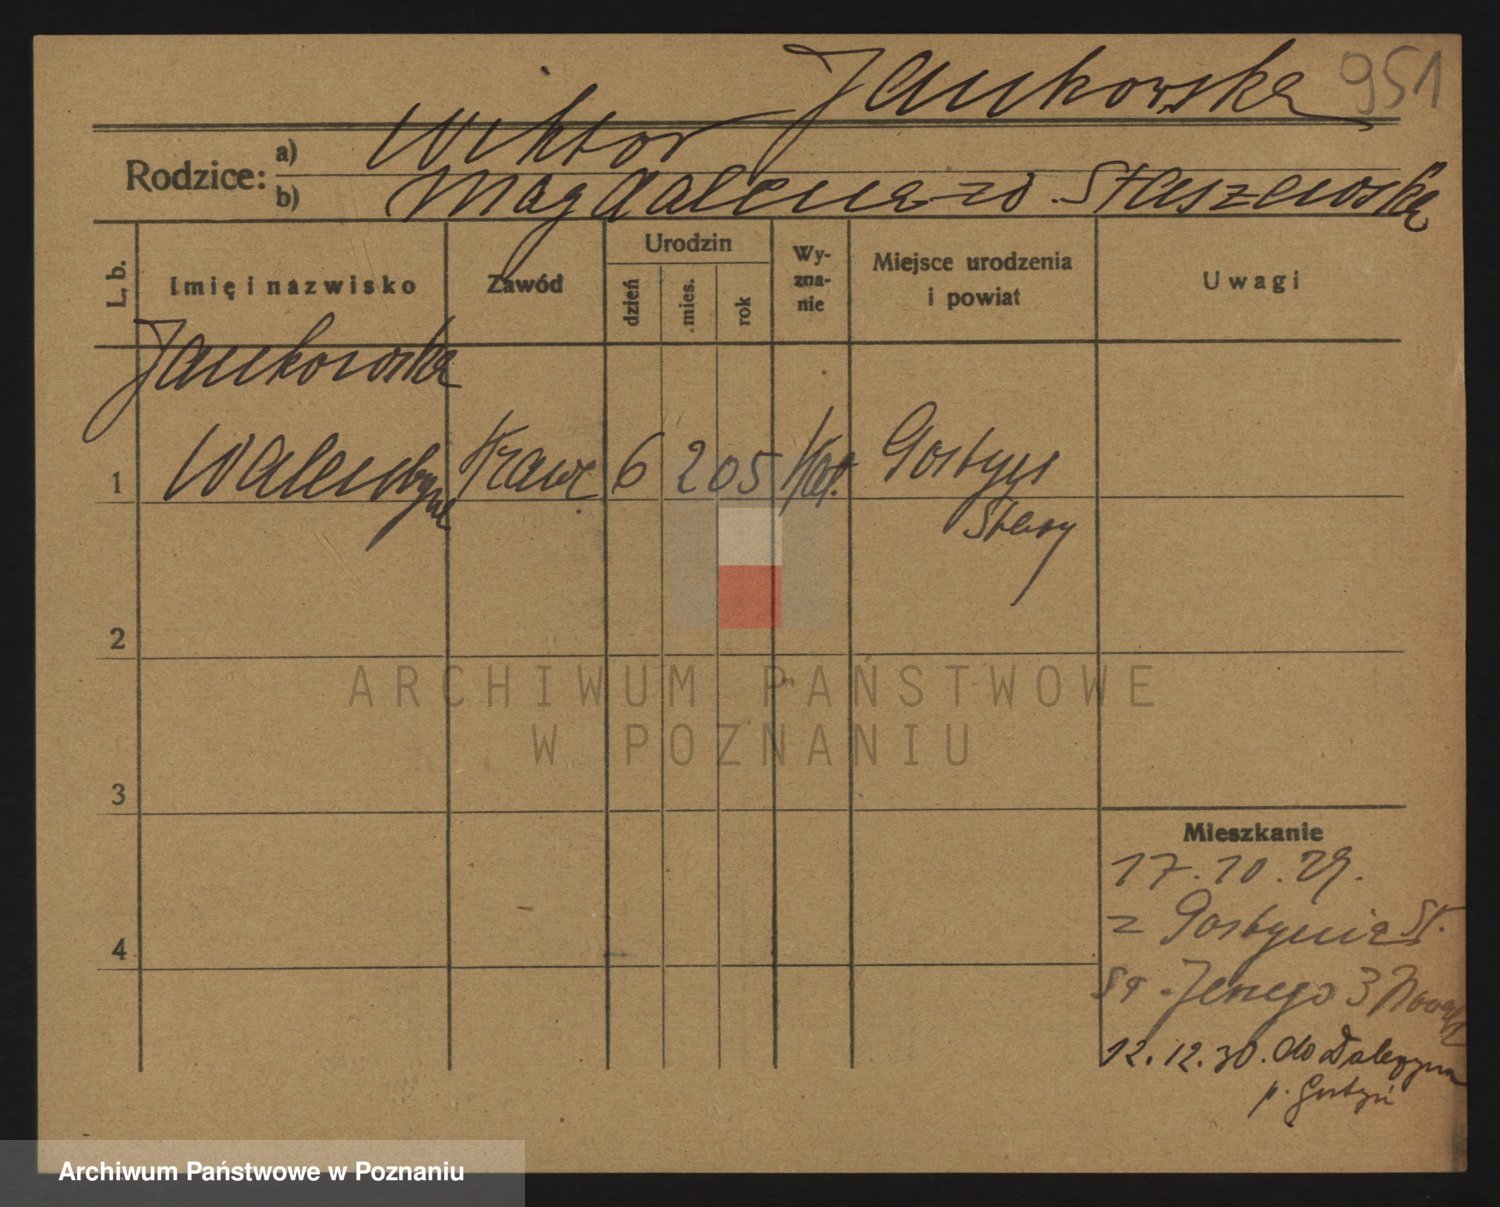 Jankowska 951
Rodzice: a) Wiktor
b) Magdalena zd. Staszewska
L. b. Imię i nazwisko Zawód Urodzin dzień mies. rok Wy-zna-nie Miejsce urodzenia i powiat Uwagi
Jankowska
1 Walentyna Krawc 6 2 05 Kat. Gostyń
Stary
2
ARCHIWUM PAŃSTWOWE
W POZNANIU
3
Mieszkanie
17.10.29.
z Gostynia St.
4
3
12.12.30. do Daleszyna
p. Gostyń
Archiwum Państwowe w Poznaniu